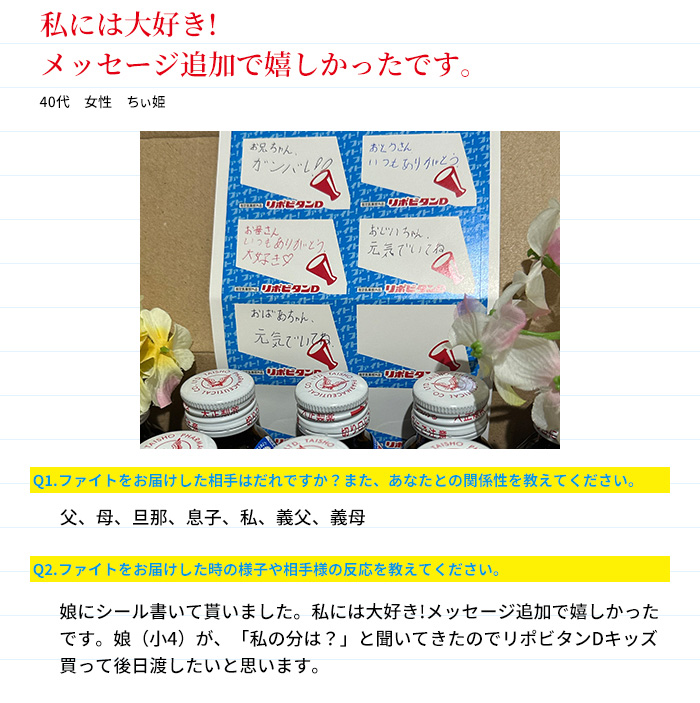 私には大好き!
メッセージ追加で嬉しかったです。
40代　女性　ちぃ姫
お兄ちゃん、
ガンバレ!!
リポビタンD
おとうさん
いつもありがとう
リポビタンD
お母さん
いつもありがとう
大好き♡
リポビタンD
おじいちゃん、
元気でいてね
リポビタンD
おばあちゃん、
元気でいてね
リポビタンD
リポビタンD
TAISHO
Q1.ファイトをお届けした相手はだれですか？また、あなたとの関係性を教えてください。
父、母、旦那、息子、私、義父、義母
Q2.ファイトをお届けした時の様子や相手様の反応を教えてください。
娘にシール書いて貰いました。私には大好き!メッセージ追加で嬉しかった
です。娘（小4）が、「私の分は？」と聞いてきたのでリポビタンDキッズ
買って後日渡したいと思います。